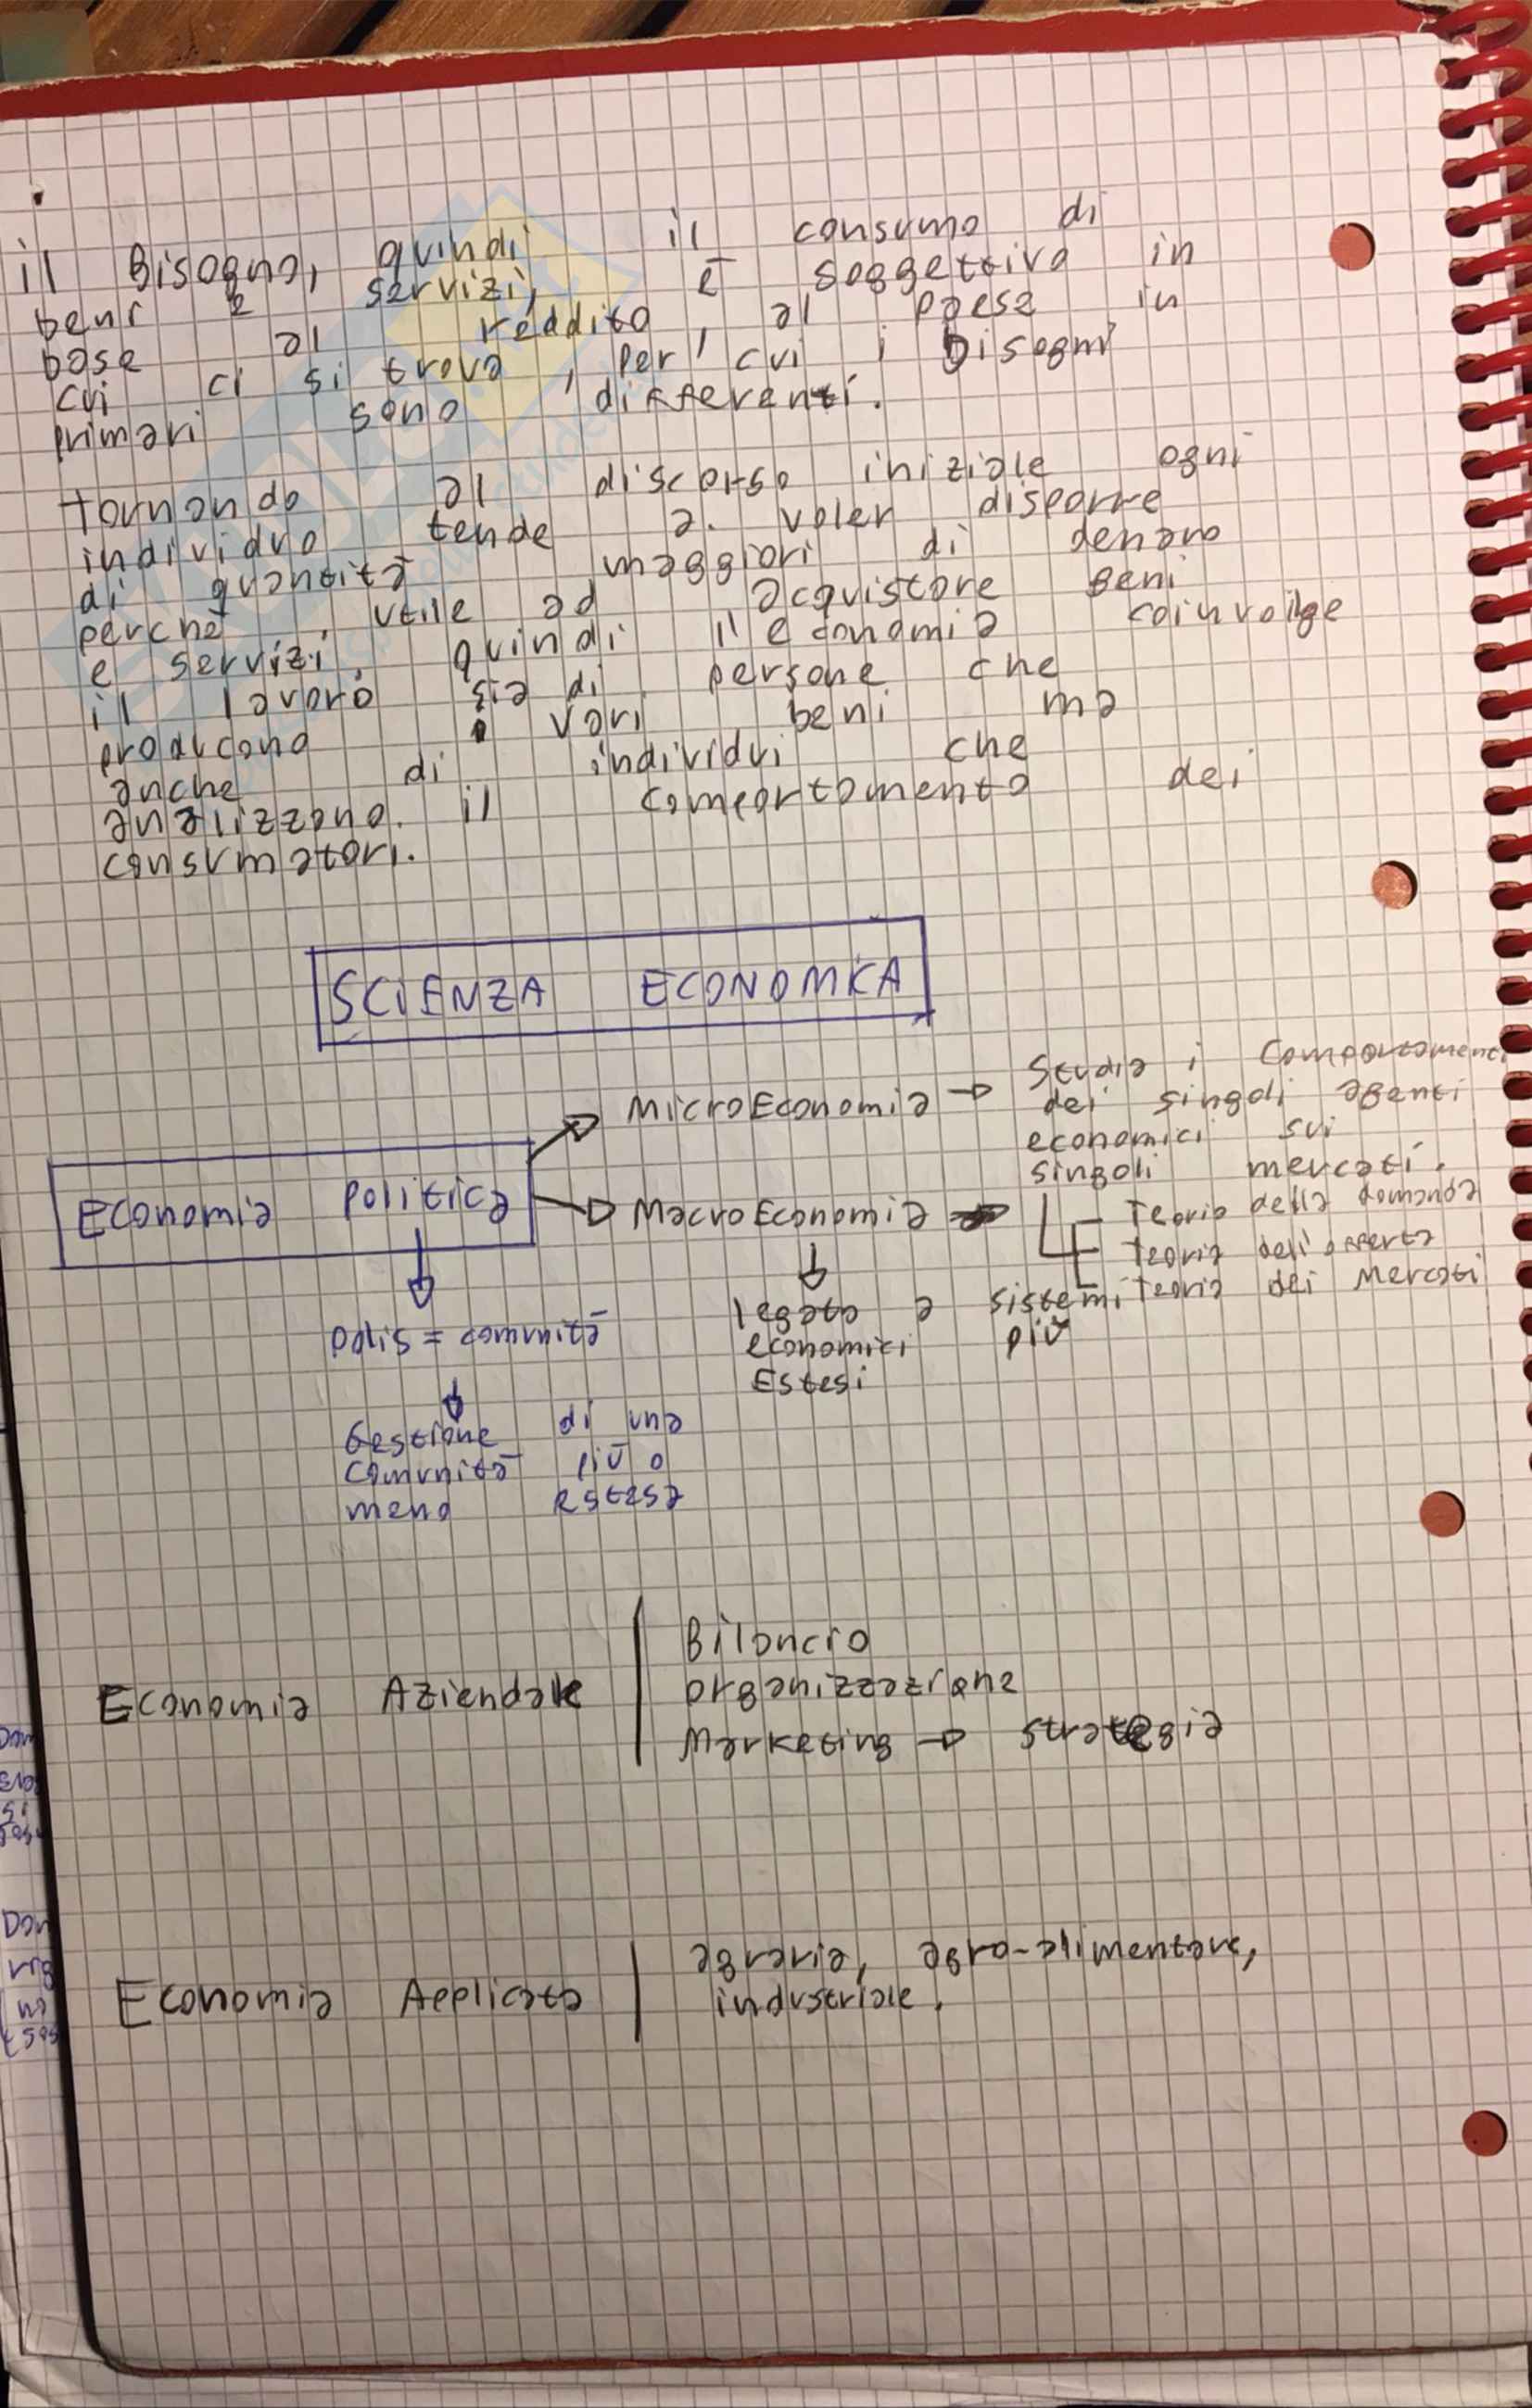 il Bisogno, quindi il consumo di
beni e servizi, è soggettivo in
base al reddito, al paese in
cui ci si trova, per cui i bisogni
primari sono differenti.
tornando al discorso iniziale ogni
individuo tende a voler disporre
di quantità maggiori di denaro
perché utile ad acquistare Beni
e servizi, quindi l'economia coinvolge
il lavoro sia di persone che
producono vari beni ma
anche di individui che
analizzano il comportamento dei
consumatori.
SCIENZA ECONOMICA
MicroEconomia → Studia i Comportamenti
dei singoli agenti
economici sui
singoli mercati.
Economia Politica
MacroEconomia
Teoria della domanda
Teoria dell'offerta
Teoria dei Mercati
polis = comunità
legata a sistemi
economici più
Estesi
Gestione di una
comunità più o
meno Estesa
Economia Aziendale
Bilancio
organizzazione
Marketing → strategia
Economia Applicata
agraria, agro-alimentare,
industriale.